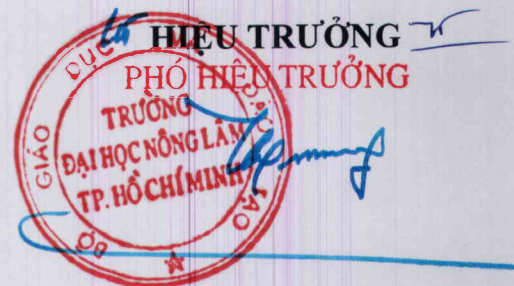 HIỆU TRƯỞNG
PHÓ HIỆU TRƯỞNG
BỘ GIÁO DỤC ĐÀO TẠO
TRƯỜNG
ĐẠI HỌC NÔNG LÂM
TP. HỒ CHÍ MINH